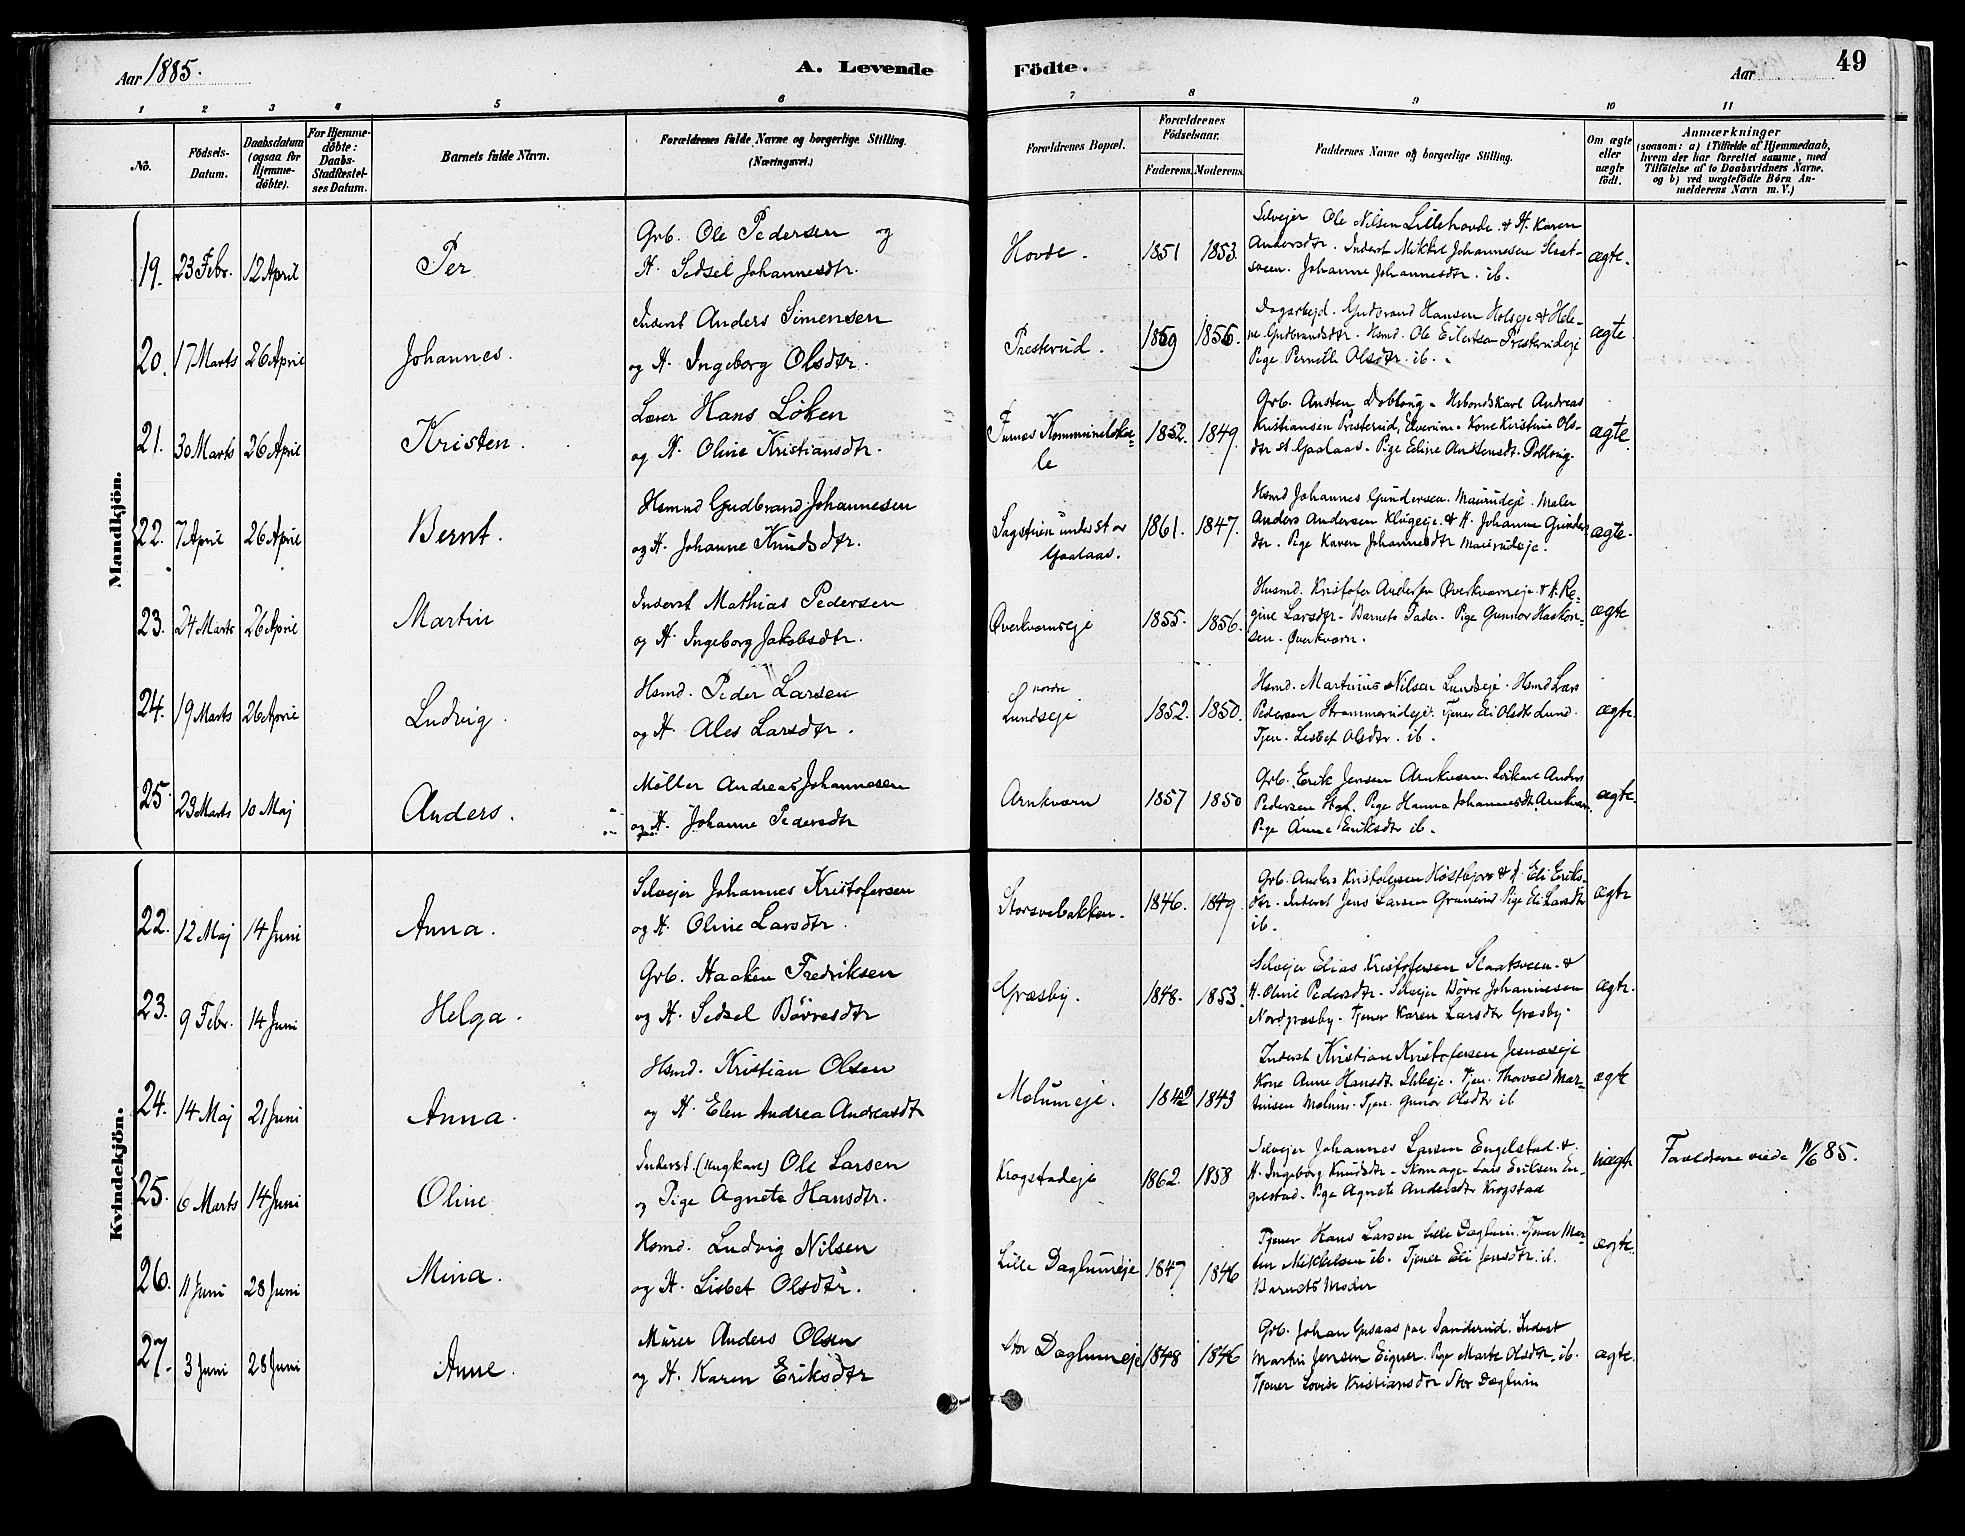 Aar 1885.
A. Levende Födte.
Aar
49
1 2 3 4 5 6 7 8 9 10 11
No.
Födsels-Datum.
Daabsdatum (ogsaa for Hjemmedöbte).
For Hjemmedöbte: Daabs-Stadfæstelses Datum.
Barnets fulde Navn.
Forældrenes fulde Navne og borgerlige Stilling. (Næringsvei.)
Forældrenes Bopæl.
Forældrenes Födselsaar.
Faderens. Moderens.
Faddernes Navne og borgerlige Stilling.
Om ægte eller uægte födt.
Anmærkninger
(saasom: a) i Tilfælde af Hjemmedaab, hvem der har forrettet samme, med Tilföielse af to Daabsvidners Navne. og b) ved uægtefödte Börn Anmelderens Navn m. V.)
Mandkjön.
19. 23 Febr. 12 April Per Grb. Ole Pedersen og
H. Sidsel Johannesdtr. Hovde. 1851 1853. ægte.
Selvejer Ole Nilsen Lillehovde & H. Karen
Andersdtr. Inderst Mikkel Johannesen
Johanne Johannesdtr. ib.
20. 17 Marts 26 April Johannes. Inderst Anders Simensen
og H. Ingeborg Olsdtr. Presterud. 1859 1856. ægte
Dagarbejd. Gudbrand Hansen Holseje & Hele-
ne Gudbrandsdtr. Hsmd. Ole Eilertsen Presterudeje
Pige Pernille Olsdtr. ib.
21. 30 Marts 26 April Kristen. Lærer Hans Löken
og H. Oline Kristiansdtr. Furnes Kommunelokale 1852. 1849. ægte.
Grb. Austen Dobloug. Andreas
Kristiansen Presterud, Elverum. Kone Kirstine Ols-
dtr. st. Gaalaas. Pige Eline Doblaug.
22. 7 April 26 April Bernt. Hsmnd Gudbrand Johannesen
og H. Johanne Knudsdtr. under st or
Gaalaas. 1861. 1847. ægte.
Hsmd Johannes Gundersen. Maurudeje. Maler
Anders Andersen Klugeje. & H. Johanne Gunders
dtr. Pige Karen Johannesdtr Maurudeje.
23. 24 Marts 26 April Martin Inderst Mathias Pedersen
og H. Ingeborg Jakobsdtr. Överkværneje 1855. 1856. ægte
Husmd. Kristofer Andersen Överkværneje & H. Re-
gine Larsdtr. Barnets Fader. Pige Gunnor Haakon-
sen. Överkværn.
24. 19 Marts 26 April Ludvig. Hsmd. Peder Larsen
og H. Ales Larsdtr. nordre
Lundseje 1852. 1850. ægte.
Hsmd. Martinus Nilsen Lundseje. Hsmd Lars
Pedersen Strammerudeje. Tjener Eli Olsdtr Lund.
Tjen. Lisbet Olsdtr. ib.
25. 23 Marts 10 Maj Anders. Möller Andreas Johannesen
og H. Johanne Pedersdtr Arnkværn 1857 1850 ægte.
Grb. Erik Jensen Arnkværn. Anders
Pedersen Pige Hanna Johannesdtr. Arnkværn.
Pige Anne Eriksdtr ib.
Kvindekjön.
22. 12 Maj 14 Juni Anna. Selvejer Johannes Kristofersen
og H. Oline Larsdtr. Storsvebakken. 1846. 1849. ægte
Grb. Anders Kristofersen Höstbjör & H. Eli Eriks-
dtr. Inderst Jens Larsen Granerud Pige Eli Larsdtr
ib.
23. 9 Febr. 14 Juni Helga. Grb. Haaken Fredriksen
og H. Sidsel Börresdtr Græsby. 1848. 1853. ægte.
Selvejer Elias Kristofersen Slaatsveen. &
H. Oline Pedersdtr. Selvejer Börre Johannesen
Nordgræsby. Tjener Karen Larsdtr Græsby.
24. 14 Maj 21 Juni Anna. Hsmd. Kristian Olsen
og H. Elen Andrea Andreasdtr Molumeje. 1842 1843 ægte
Inderst Kristian Kristofersen Jesneseje
Kone Anne Hansdtr. Ihleeje. Tjen. Thorvald Mar-
tinsen Molum. Tjen. Gunor Olsdtr ib
25. 6 Marts 14 Juni Oline Inderst (Ungkarl) Ole Larsen
og Pige Agnete Hansdtr. Krogstadeje 1862. 1858 uægte
Selvejer Johannes Larsen Engelstad. &
H. Ingeborg Knudsdtr. Skomager Lars Eriksen En-
gelstad. Pige Agnete Andersdtr Krogstad
Forældrene viede 11/6 85.
26. 11 Juni 28 Juni Mina. Hsmd. Ludvig Nilsen
og H. Lisbet Olsdtr. Lille Daglumeje 1847 1846 ægte.
Tjener Hans Larsen Lille Daglum. Tjener Mar-
tin Mikkelsen ib. Tjener Eli Jensdtr. ib.
Barnets Moder
27. 3 Juni 28 Juni Anne. Murer Anders Olsen
og H. Karen Eriksdtr Stor Daglumeje 1848 1846 ægte.
Grb. Johan paa Sanderud. Inderst
Martin Jensen Eigner. Pige Marte Olsdtr. ib.
Tjener Lovise Kristiansdtr Stor Daglum